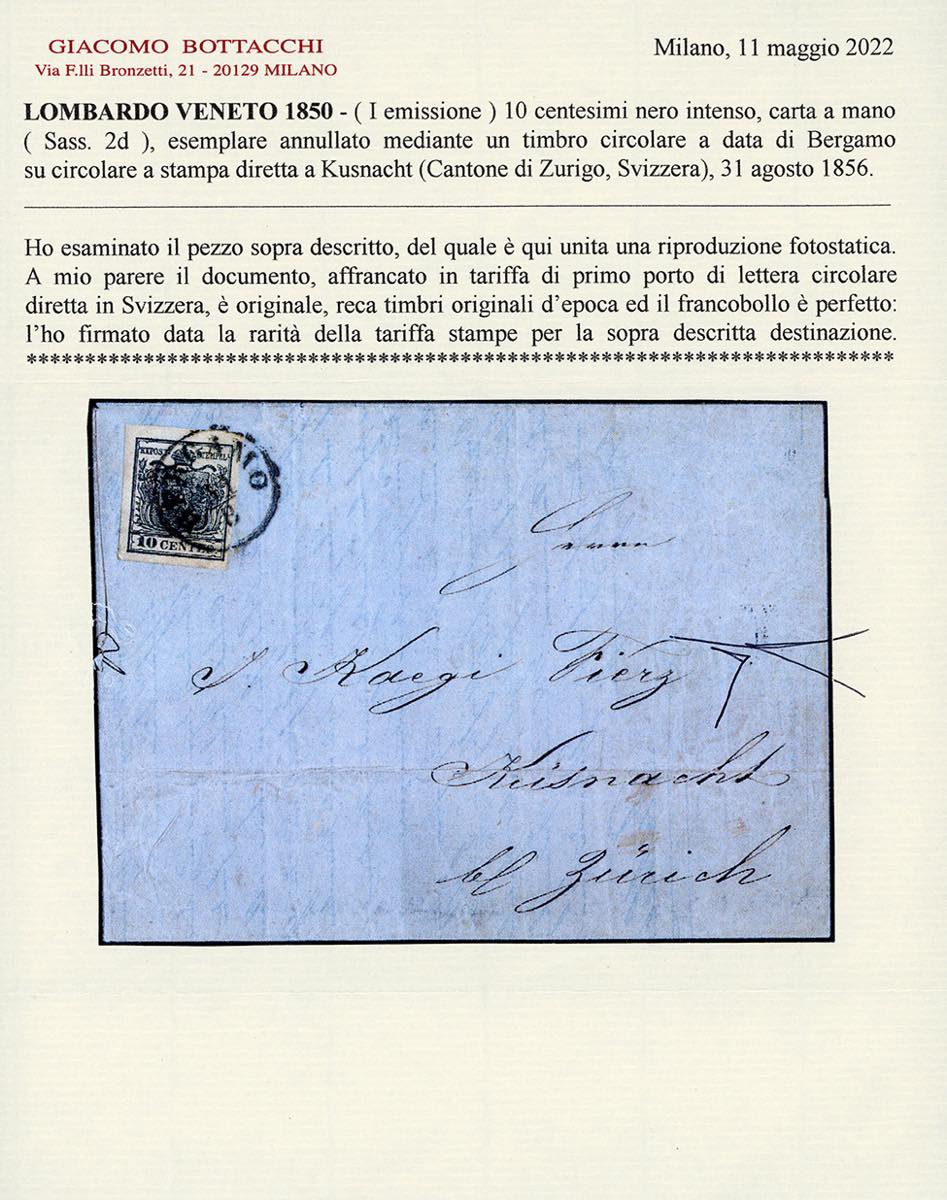 GIACOMO BOTTACCHI
Via F.lli Bronzetti, 21 - 20129 MILANO
Milano, 11 maggio 2022
LOMBARDO VENETO 1850 - ( I emissione ) 10 centesimi nero intenso, carta a mano
( Sass. 2d ), esemplare annullato mediante un timbro circolare a data di Bergamo
su circolare a stampa diretta a Kusnacht (Cantone di Zurigo, Svizzera), 31 agosto 1856.
Ho esaminato il pezzo sopra descritto, del quale è qui unita una riproduzione fotostatica.
A mio parere il documento, affrancato in tariffa di primo porto di lettera circolare
diretta in Svizzera, è originale, reca timbri originali d’epoca ed il francobollo è perfetto:
l’ho firmato data la rarità della tariffa stampe per la sopra descritta destinazione.
******************************************************************************
10 CENTES
Herrn
J. Kaegi Fierz
Küsnacht
Zürich